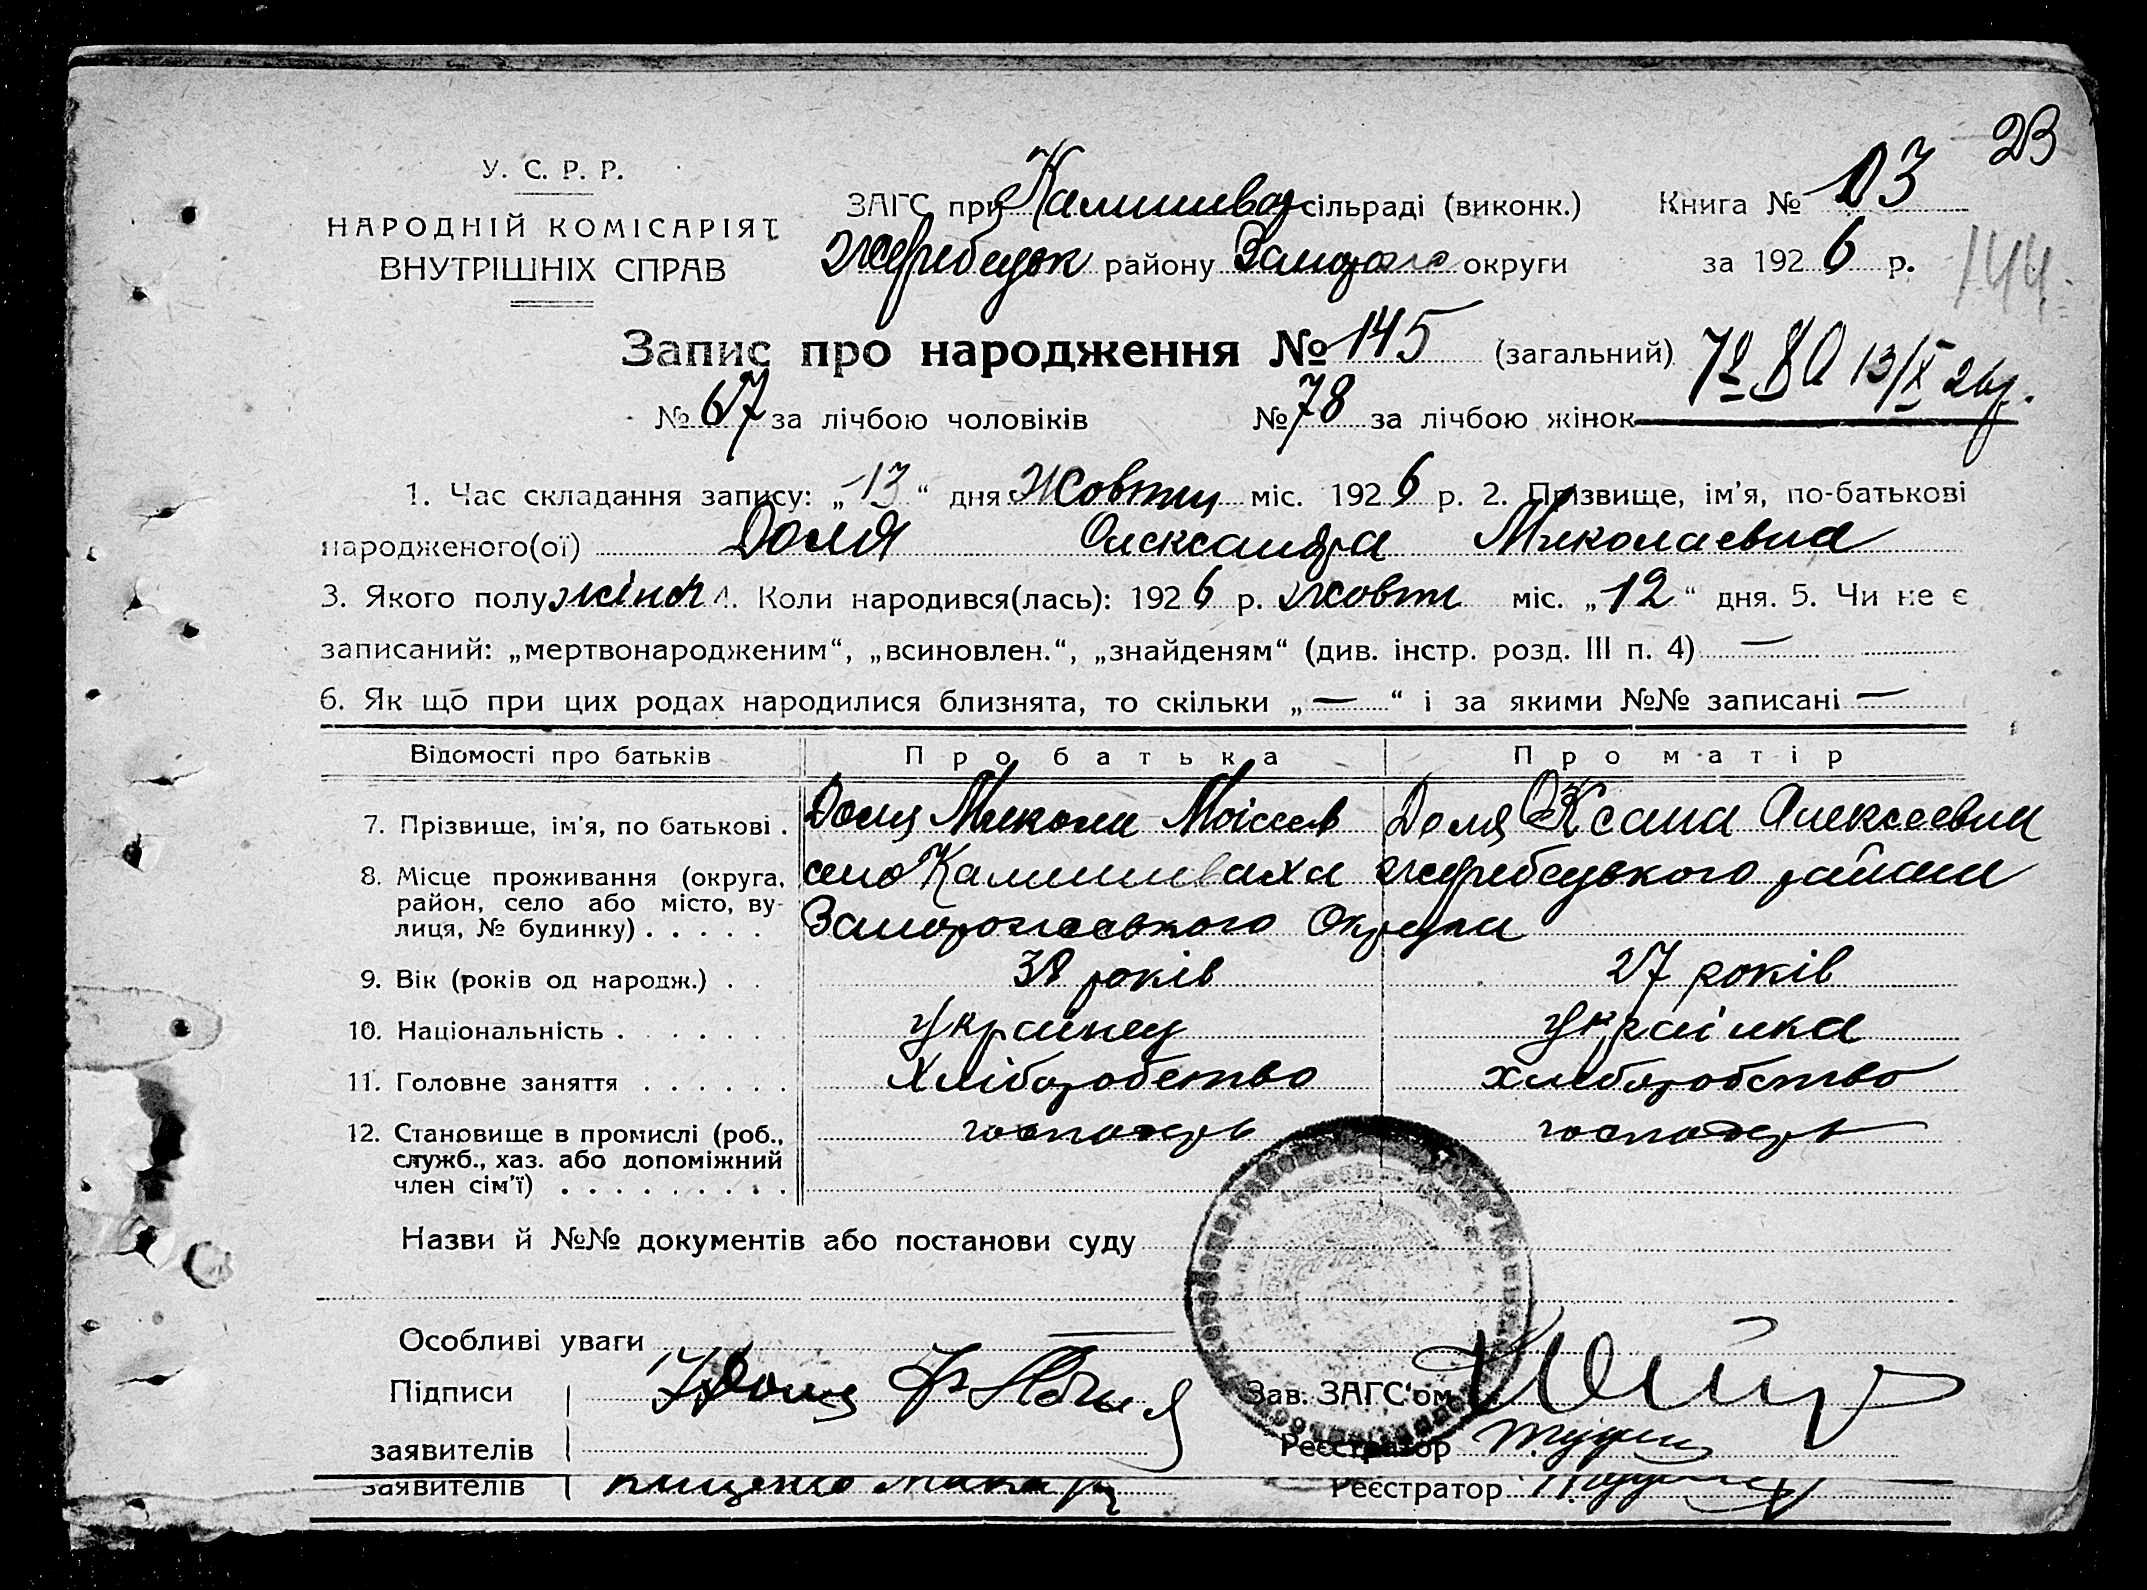 23
У. С. Р. Р.
НАРОДНІЙ КОМІСАРІЯТ
ВНУТРІШНІХ СПРАВ
ЗАГС при Камишевах сільраді (виконк.)
Жеребецьк району Запорозьк округи
Книга № 03
за 1926 р.
144
Запис про народження № 145 (загальний)
13/X 26 р.
№ 67 за лічбою чоловіків № 78 за лічбою жінок
1. Час складання запису: „13“ дня Жовтня міс. 1926 р. 2. Прізвище, ім'я, по-батькові
народженого(ої) Доля Олександра Миколаевна
3. Якого полу жіноч 4. Коли народився(лась): 1926 р. жовтн міс. „12“ дня. 5. Чи не є
записаний: „мертвонародженим“, „всиновлен.“, „знайденям“ (див. інстр. розд. III п. 4) —
6. Як що при цих родах народилися близнята, то скільки „—“ і за якими №№ записані —
Відомості про батьків Про батька Про матір
7. Прізвище, ім'я, по батькові . Доля Микола Моісеев Доля Оксана Алексеевна
8. Місце проживання (округа, село Камишеваха Жеребецького району
район, село або місто, ву-
лиця, № будинку) . . . . . Запорожського Округи
9. Вік (років од народж.) . . 38 років 27 років
10. Національність . . . . . . українец українка
11. Головне заняття . . . . . . Хліборобство хлеборобство
12. Становище в промислі (роб., господарь господарь
служб., хаз. або допоміжний
член сім'ї) . . . . . . . . .
Назви й №№ документів або постанови суду
Особливі уваги —
Підписи Доля Зав. ЗАГС'ом
заявителів Реєстратор
заявителів Реєстратор